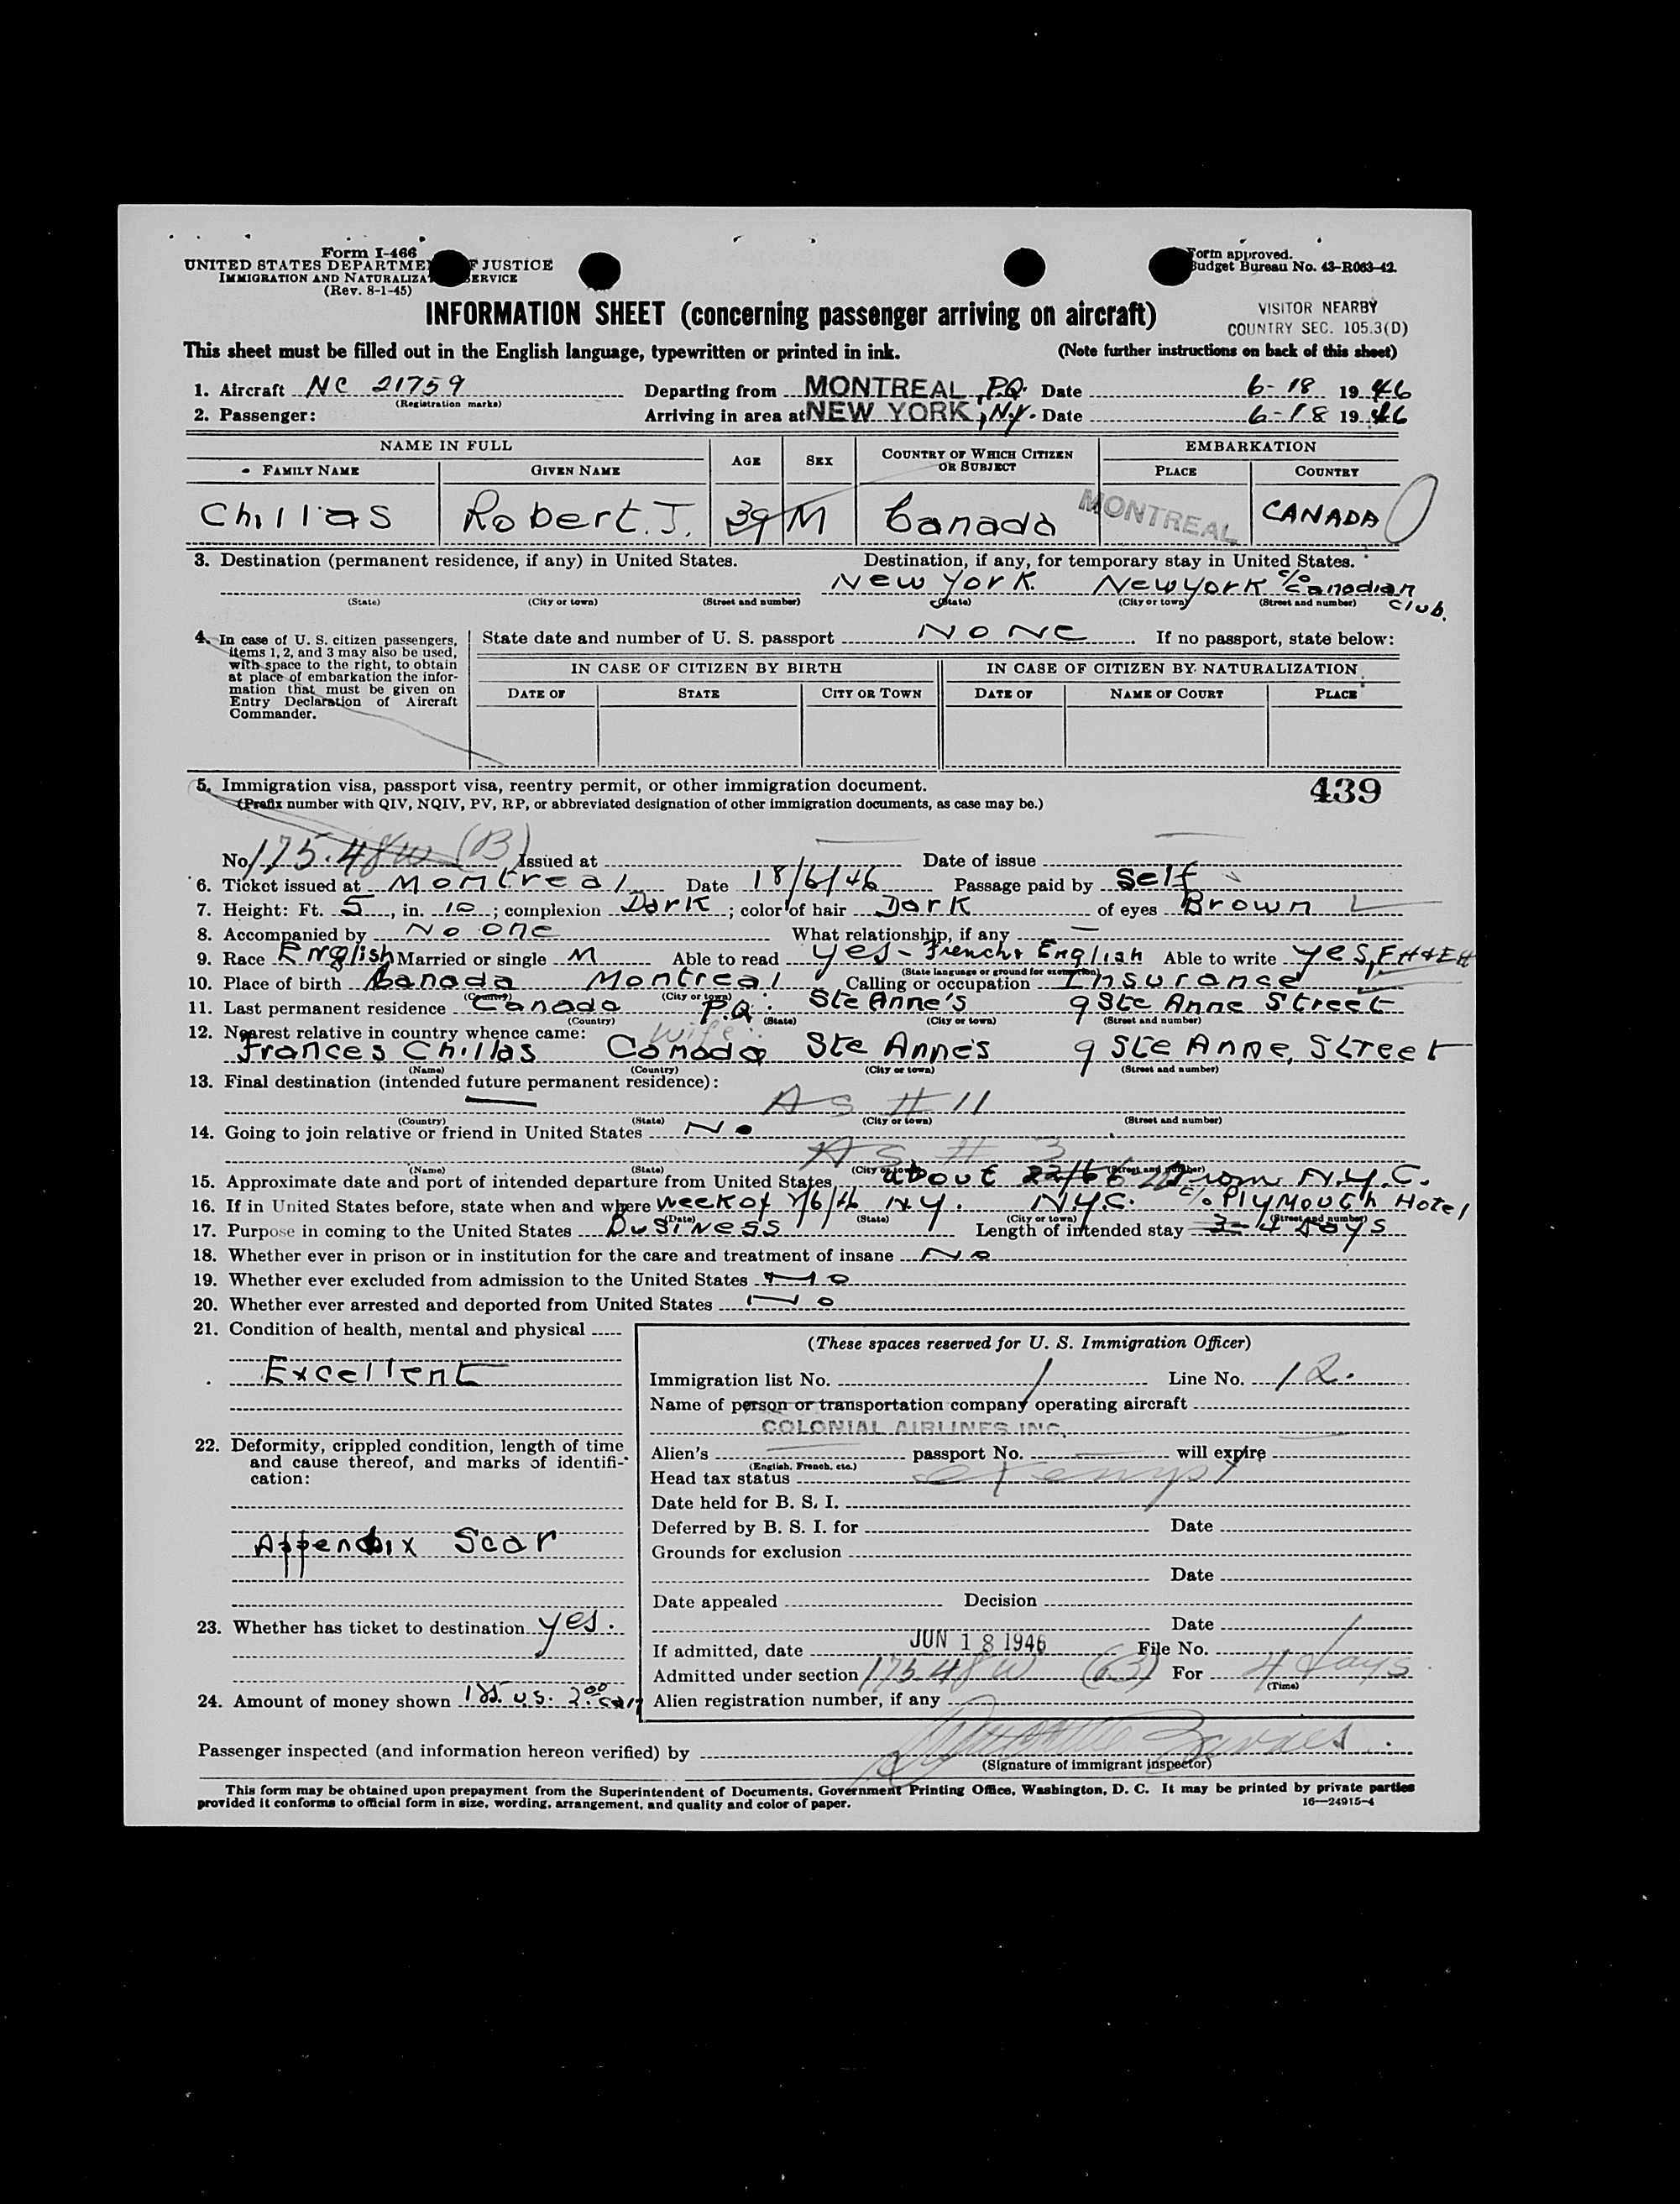 Form I-466
UNITED STATES DEPARTMENT OF JUSTICE
IMMIGRATION AND NATURALIZATION SERVICE
(Rev. 8-1-45)
Form approved.
Budget Bureau No. 43-R063-42.
INFORMATION SHEET (concerning passenger arriving on aircraft)
VISITOR NEARBY
COUNTRY SEC. 105.3(D)
This sheet must be filled out in the English language, typewritten or printed in ink. (Note further instructions on back of this sheet)
1. Aircraft NC 21759 Departing from MONTREAL, P.Q. Date 6-18 1946
(Registration marks)
2. Passenger: Arriving in area at NEW YORK, N.Y. Date 6-18 1946
NAME IN FULL AGE SEX COUNTRY OF WHICH CITIZEN OR SUBJECT EMBARKATION
FAMILY NAME GIVEN NAME PLACE COUNTRY
Chillas Robert. J. 39 M Canada MONTREAL CANADA
3. Destination (permanent residence, if any) in United States. Destination, if any, for temporary stay in United States.
New York New York c/o Canadian Club.
(State) (City or town) (Street and number) (State) (City or town) (Street and number)
4. In case of U. S. citizen passengers, items 1, 2, and 3 may also be used, with space to the right, to obtain at place of embarkation the information that must be given on Entry Declaration of Aircraft Commander.
State date and number of U. S. passport None If no passport, state below:
IN CASE OF CITIZEN BY BIRTH IN CASE OF CITIZEN BY NATURALIZATION
DATE OF STATE CITY OR TOWN DATE OF NAME OF COURT PLACE
5. Immigration visa, passport visa, reentry permit, or other immigration document. 439
(Prefix number with QIV, NQIV, PV, RP, or abbreviated designation of other immigration documents, as case may be.)
No. 175.48W (B) Issued at Date of issue
6. Ticket issued at Montreal Date 18/6/46 Passage paid by Self
7. Height: Ft. 5, in. 10; complexion Dark; color of hair Dark of eyes Brown
8. Accompanied by No one What relationship, if any —
9. Race English Married or single M Able to read yes - French & English Able to write yes,
(State language or ground for exemption)
10. Place of birth Canada Montreal Calling or occupation Insurance
(Country) (City or town)
11. Last permanent residence Canada P.Q. Ste Anne's 9 Ste Anne Street
(Country) (State) (City or town) (Street and number)
12. Nearest relative in country whence came: Wife:
Frances Chillas Canada Ste Anne's 9 Ste Anne, Street
(Name) (Country) (City or town) (Street and number)
13. Final destination (intended future permanent residence):
AS # 11
(Country) (State) (City or town) (Street and number)
14. Going to join relative or friend in United States No
AS # 3
(Name) (State) (City or town) (Street and number)
15. Approximate date and port of intended departure from United States about 22/6 from N.Y.C.
16. If in United States before, state when and where week of N.Y. N.Y.C. c/o Plymouth Hotel
(Date) (State) (City or town) (Street and number)
17. Purpose in coming to the United States Business Length of intended stay 3-4 Days
18. Whether ever in prison or in institution for the care and treatment of insane No
19. Whether ever excluded from admission to the United States No
20. Whether ever arrested and deported from United States No
21. Condition of health, mental and physical
Excellent
22. Deformity, crippled condition, length of time and cause thereof, and marks of identification:
Appendix Scar
23. Whether has ticket to destination yes.
24. Amount of money shown
(These spaces reserved for U. S. Immigration Officer)
Immigration list No. 1 Line No. 12.
Name of person or transportation company operating aircraft
COLONIAL AIRLINES INC.
Alien's passport No. will expire
(English, French, etc.)
Head tax status exempt
Date held for B. S. I.
Deferred by B. S. I. for Date
Grounds for exclusion
Date
Date appealed Decision
Date
If admitted, date JUN 18 1946 File No.
Admitted under section 175.48W For 4 days
(Time)
Alien registration number, if any
Passenger inspected (and information hereon verified) by
(Signature of immigrant inspector)
This form may be obtained upon prepayment from the Superintendent of Documents, Government Printing Office, Washington, D. C. It may be printed by private parties
provided it conforms to official form in size, wording, arrangement, and quality and color of paper. 16—24915-4